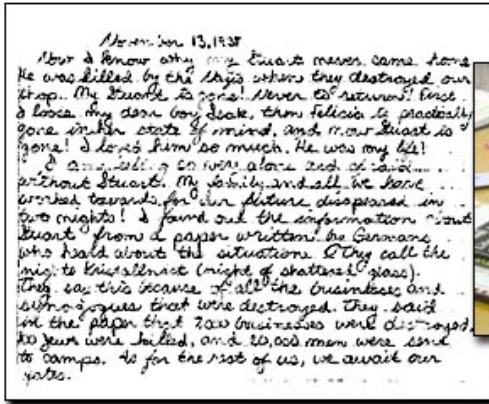 November 13, 1938
Now I know why my Stuart never came home
He was killed by the Nazis when they destroyed our
shop. My Stuart is gone! Never to return! First
I loose my dear boy Isak, then Felicia is practically
gone in her state of mind, and now Stuart is
gone! I loved him so much. He was my life!
I am so alone and afraid
without Stuart. My family and all we have
worked towards for our future disappeared in
two nights! I found out the information about
Stuart from a paper written by Germans
who heard about the situation. They call the
night Kristallnact (night of shattered glass).
They say this because of all the businesses and
synagogues that were destroyed. They said
in the paper that businesses were destroyed,
Jews were killed, and men were sent
to camps. As for the rest of us, we await our
fates.